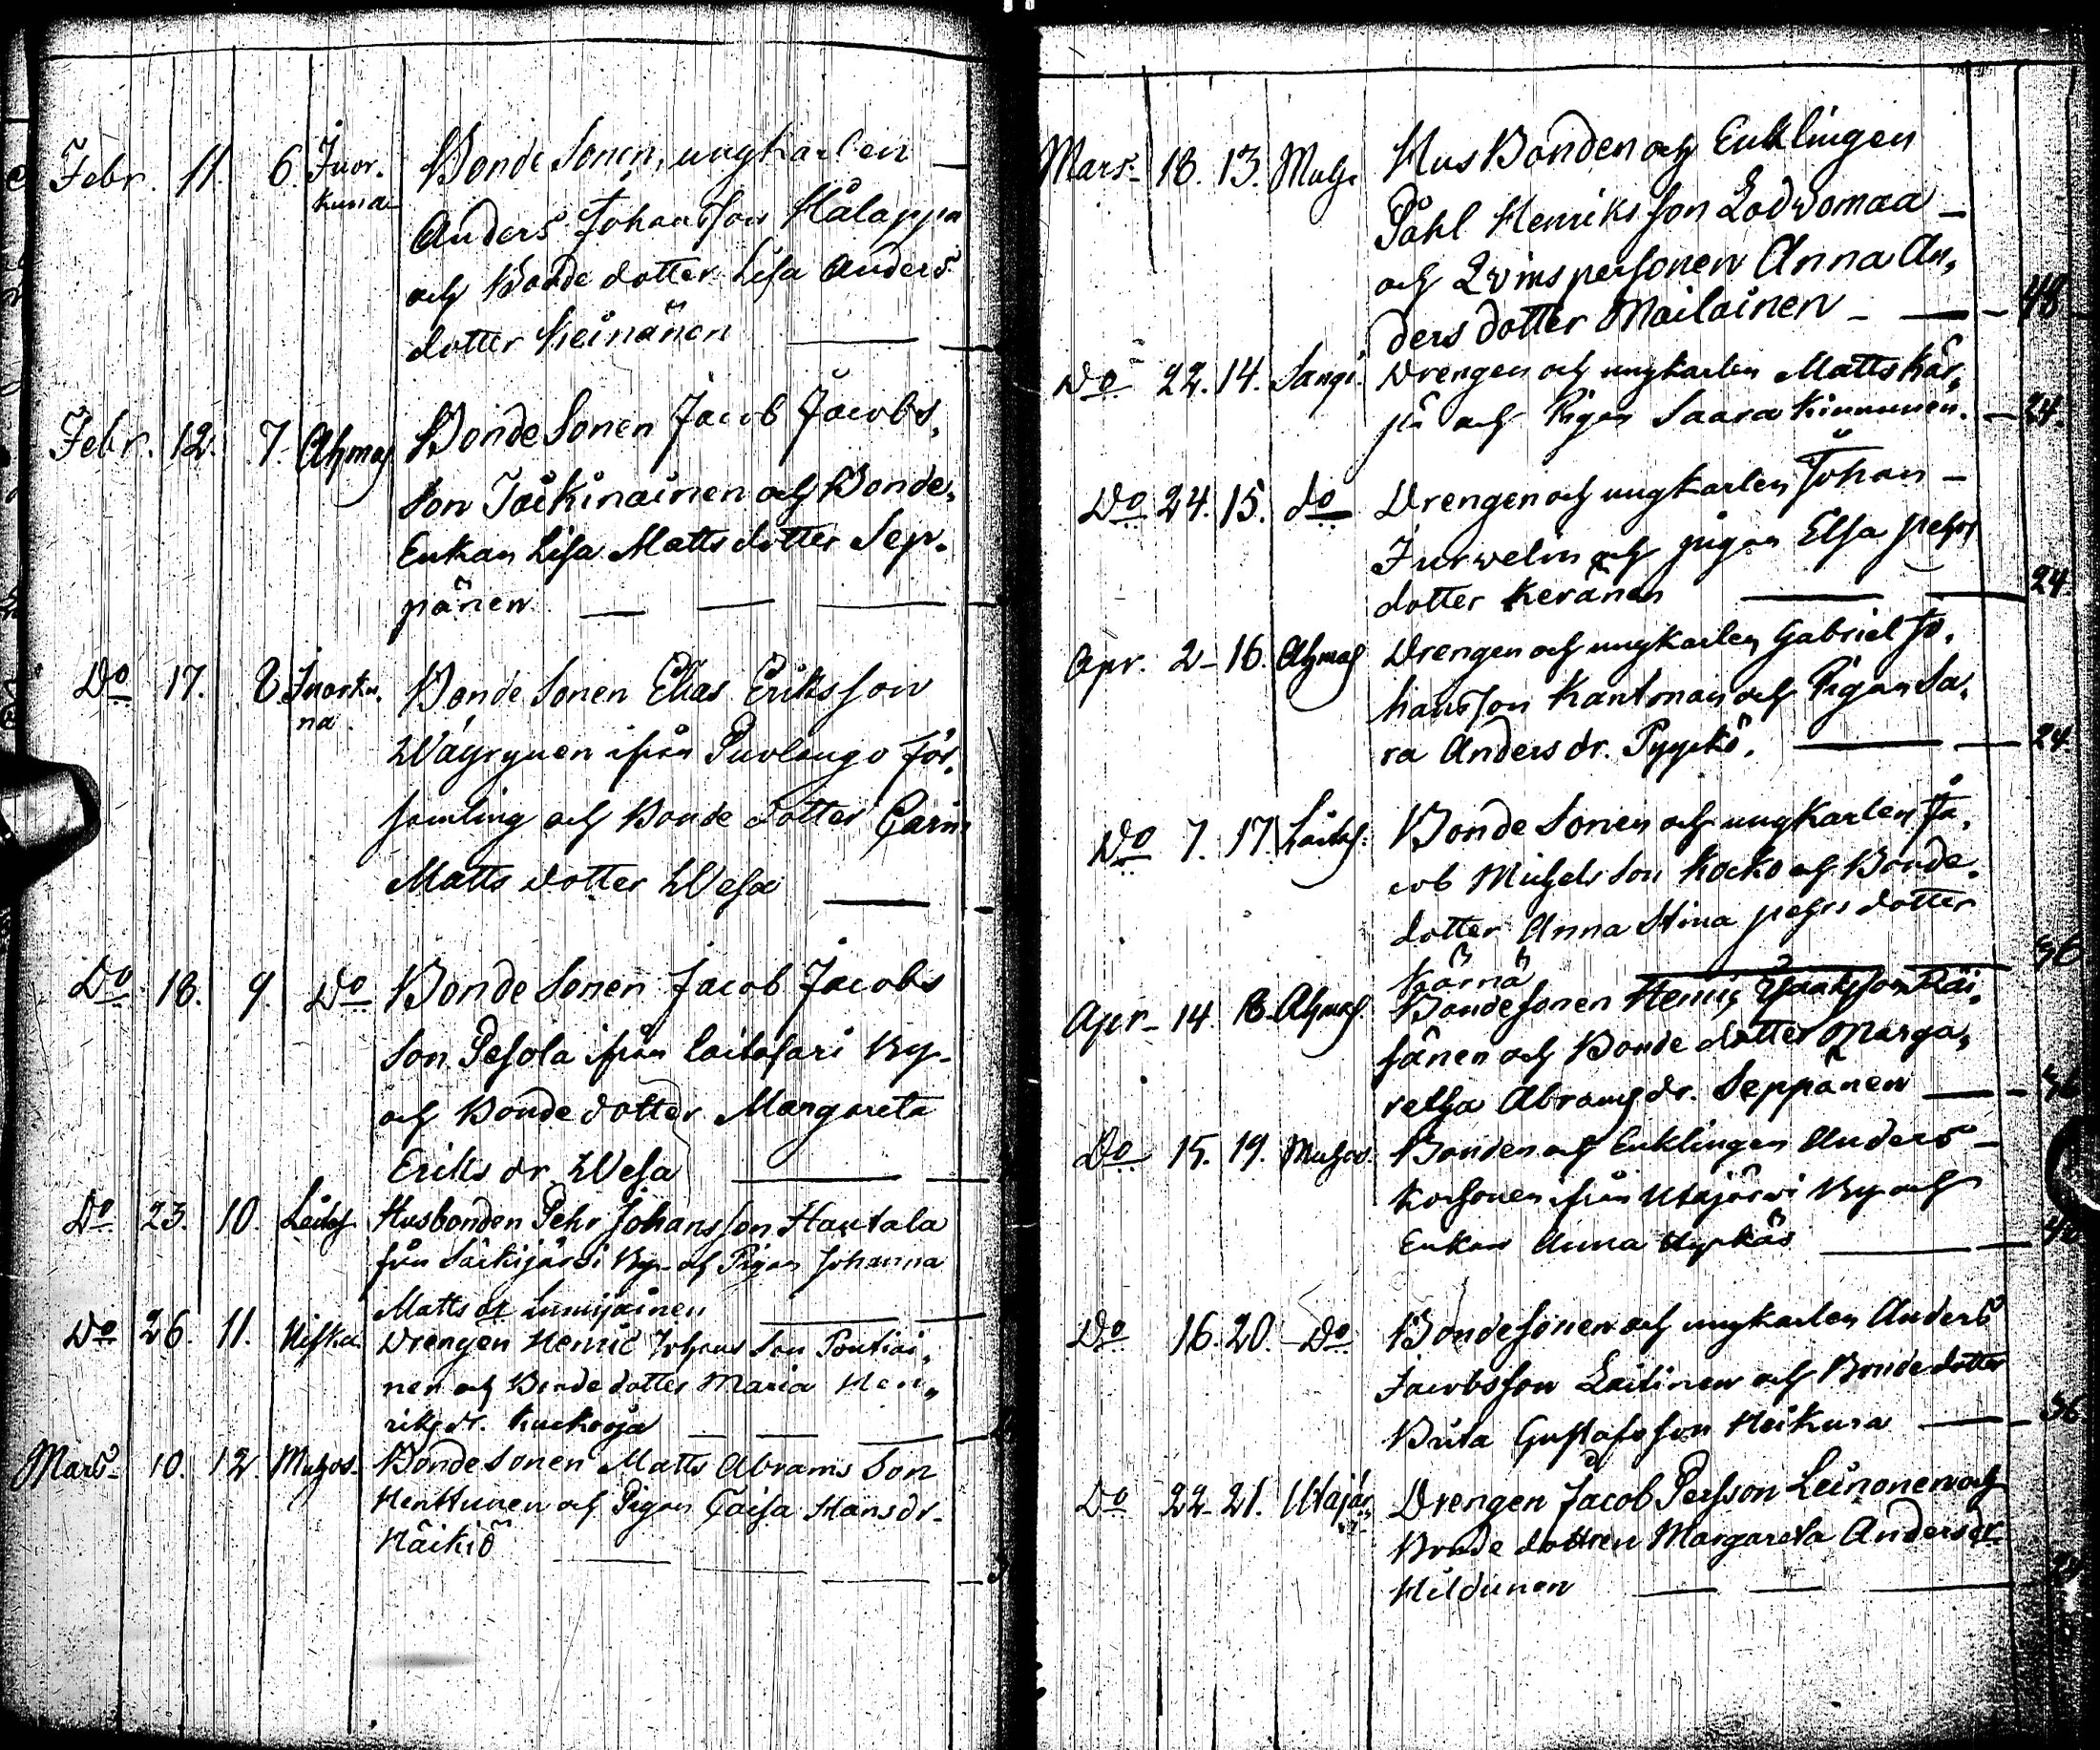 Febr. 11. 6. Juor- Bonde Sonen, ungkarlen —
kunda
Anders Johansson Halappa
och Bonde dotter Lisa Anders
dotter Keinänen
Febr. 12. 7. Ahmas Bonde Sonen Jacob Jacobs,
Son Jäikinainen och Bonde,
Enkan Lisa Matts dotter Sep-
pänen
Do 17. 8. Juorku- Bonde Sonen Elias Eriksson
na
Wäyrynen ifrån Puolango för,
samling och Bonde dotter Carin
Matts dotter Wesa
Do 18. 9. Do Bonde Sonen Jacob Jacobs
Son Pesola ifrån Laitasari By-
och Bonde dotter Margareta
Eriks dr Wesa
Do 23. 10. Laitas Husbonden Pehr Johansson Hautala
från Säikijärvi By och Pigan Johanna
Matts dr Lumijainen
Do 26. 11. Niska Drengen Henric Johans Son Pontiai,
nen och Bonde dotter Maria Hen,
riks dr.
Mars 10. 12. Muhos- Bonde Sonen Matts Abrams Son
Henttunen och Pigan Caisa Hans dr-
Häikiö
Mars- 18. 13. Muho Hus Bonden och Enklingen
Påhl Henriks son Lodvomaa —
och Qvins personen Anna An,
ders dotter Mailainen — 48
Do 22. 14. Sangi. Drengen och ungkarlen Matts Kär,
pä och Pigan Saara Kinnunen. — 24.
Do 24. 15. do Drengen och ungkarlen Johan —
Jurwelin och pigan Elsa Pehrs
dotter Keränen 24.
Apr. 2 - 16. Ahmas Drengen och ungkarlen Gabriel Jo,
hansson Kantman och Pigan Sa,
ra Anders dr. Pyykö. 24
Do 7. 17. Laitas. Bonde Sonen och ungkarlen Ja,
cob Michels Son Kocko och Bonde-
dotter Anna Stina Pehrs dotter
Körnä 36
Apr- 14. 18. Ahmas. Bonde sonen Henric Räi,
sänen och Bonde dotter Marga,
retha Abrams dr. Seppänen
Do 15. 19. Muhos. Bonden och Enklingen Anders —
Korhonen ifrån Utajärvi By och
Enkan Anna
Do 16. 20. Do Bonde sonen och ungkarlen Anders
Jacobsson Laitinen och Bonde dotter
Brita Gustafsson Heikura 36
Do 22. 21. Utajär, Drengen Jacob Persson Leinonen och
vi
Bonde dottren Margareta Anders dr
Hildunen